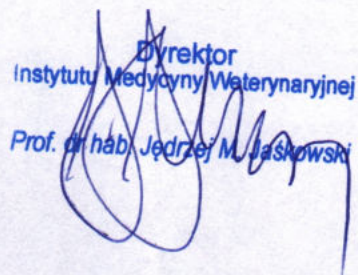 Dyrektor
Instytutu Medycyny Weterynaryjnej
Prof. dr hab. Jędrzej M. Jaśkowski